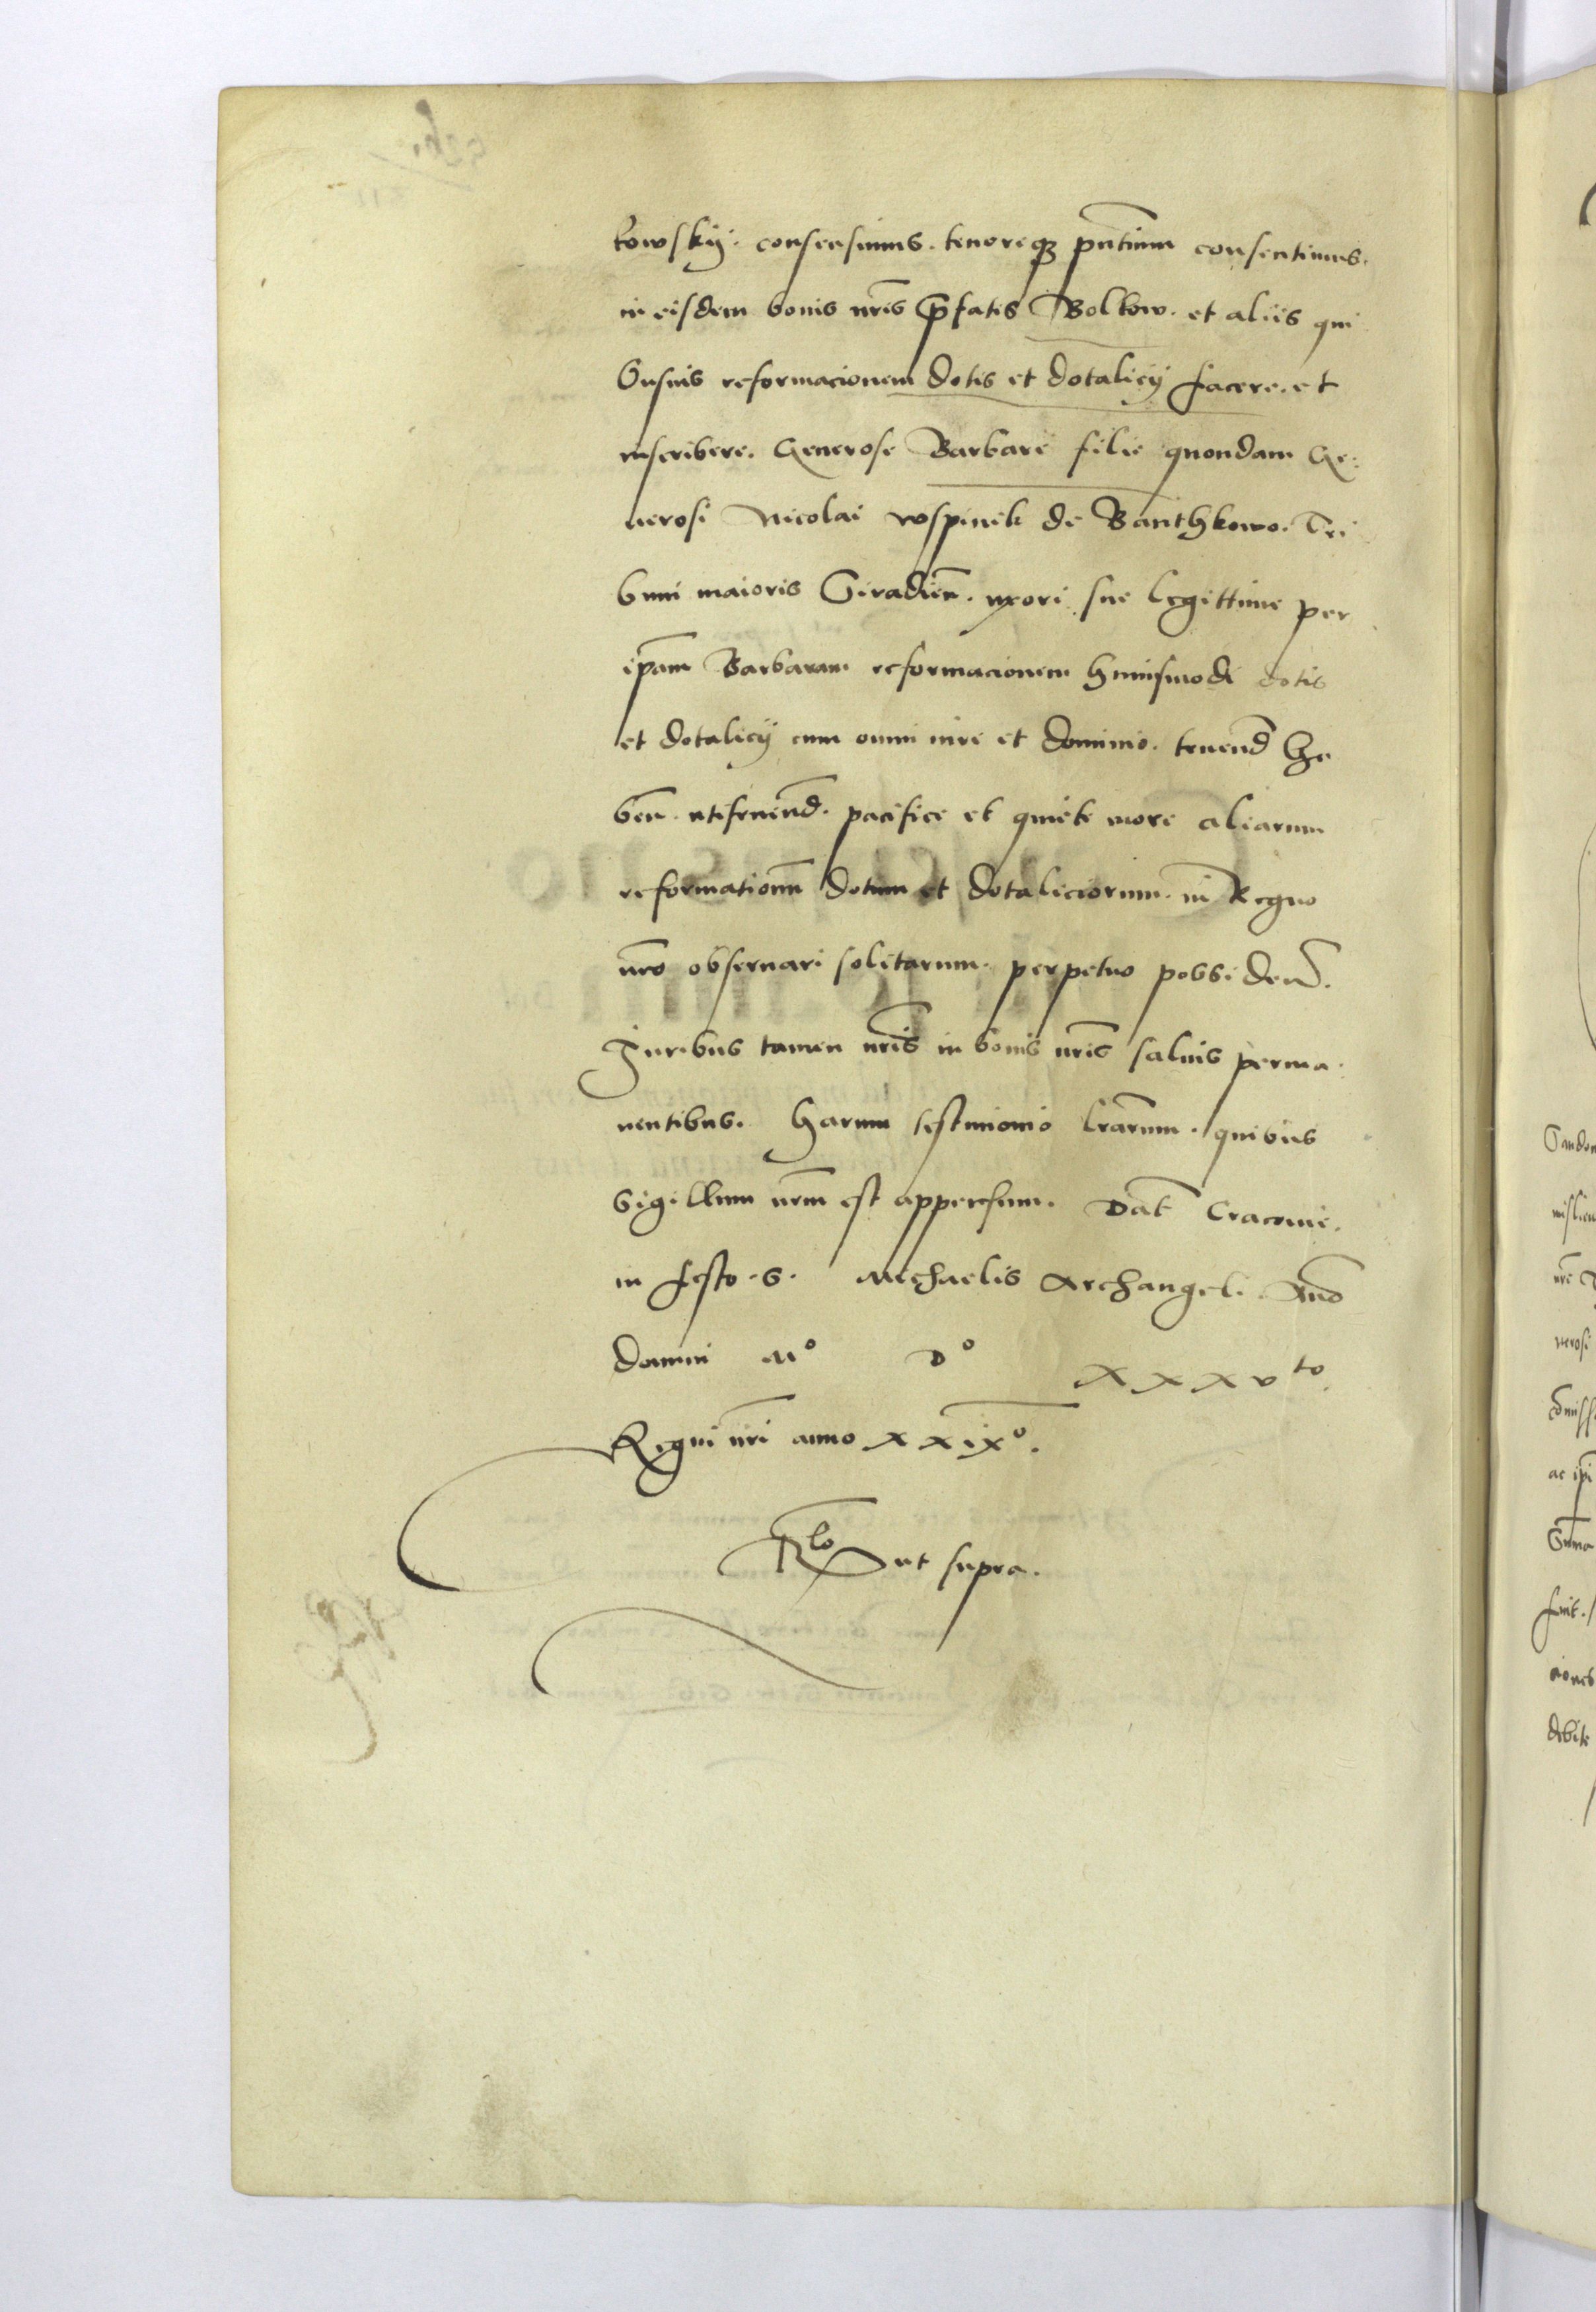 kowskij. consensimus. tenoreq3 pntium consentimus.
in eisdem bonis nris pfatis Bolkow. et aliis qui
busuis reformacionem dotis et dotalicij facere. et
inscribere. Generose Barbare filie quondam Ge
nerosi Nicolai wspinek de Banthkowo. Tri
buni maioris Siradien. uxori sue legittime per
ipam Barbaram reformacionem huiusmodi dotis
et dotalicij cum omni iure et dominio. tenend ha
ben. utifruend. pacifice et quiete more aliarum
reformationum dotum et dotaliciorum. in Regno
nro obseruari solitarum. perpetuo possidend.
Juribus tamen nris in bonis nris saluis perma
nentibus. Harum testimonio lrarum. quibus
Sigillum nrm est appensum. Dat Cracovie.
in festo .S. Michaelis Archangeli. Anno
domini Mº Dº xxxvto.
Regni nri anno xxixº.
Rlo ut supra.